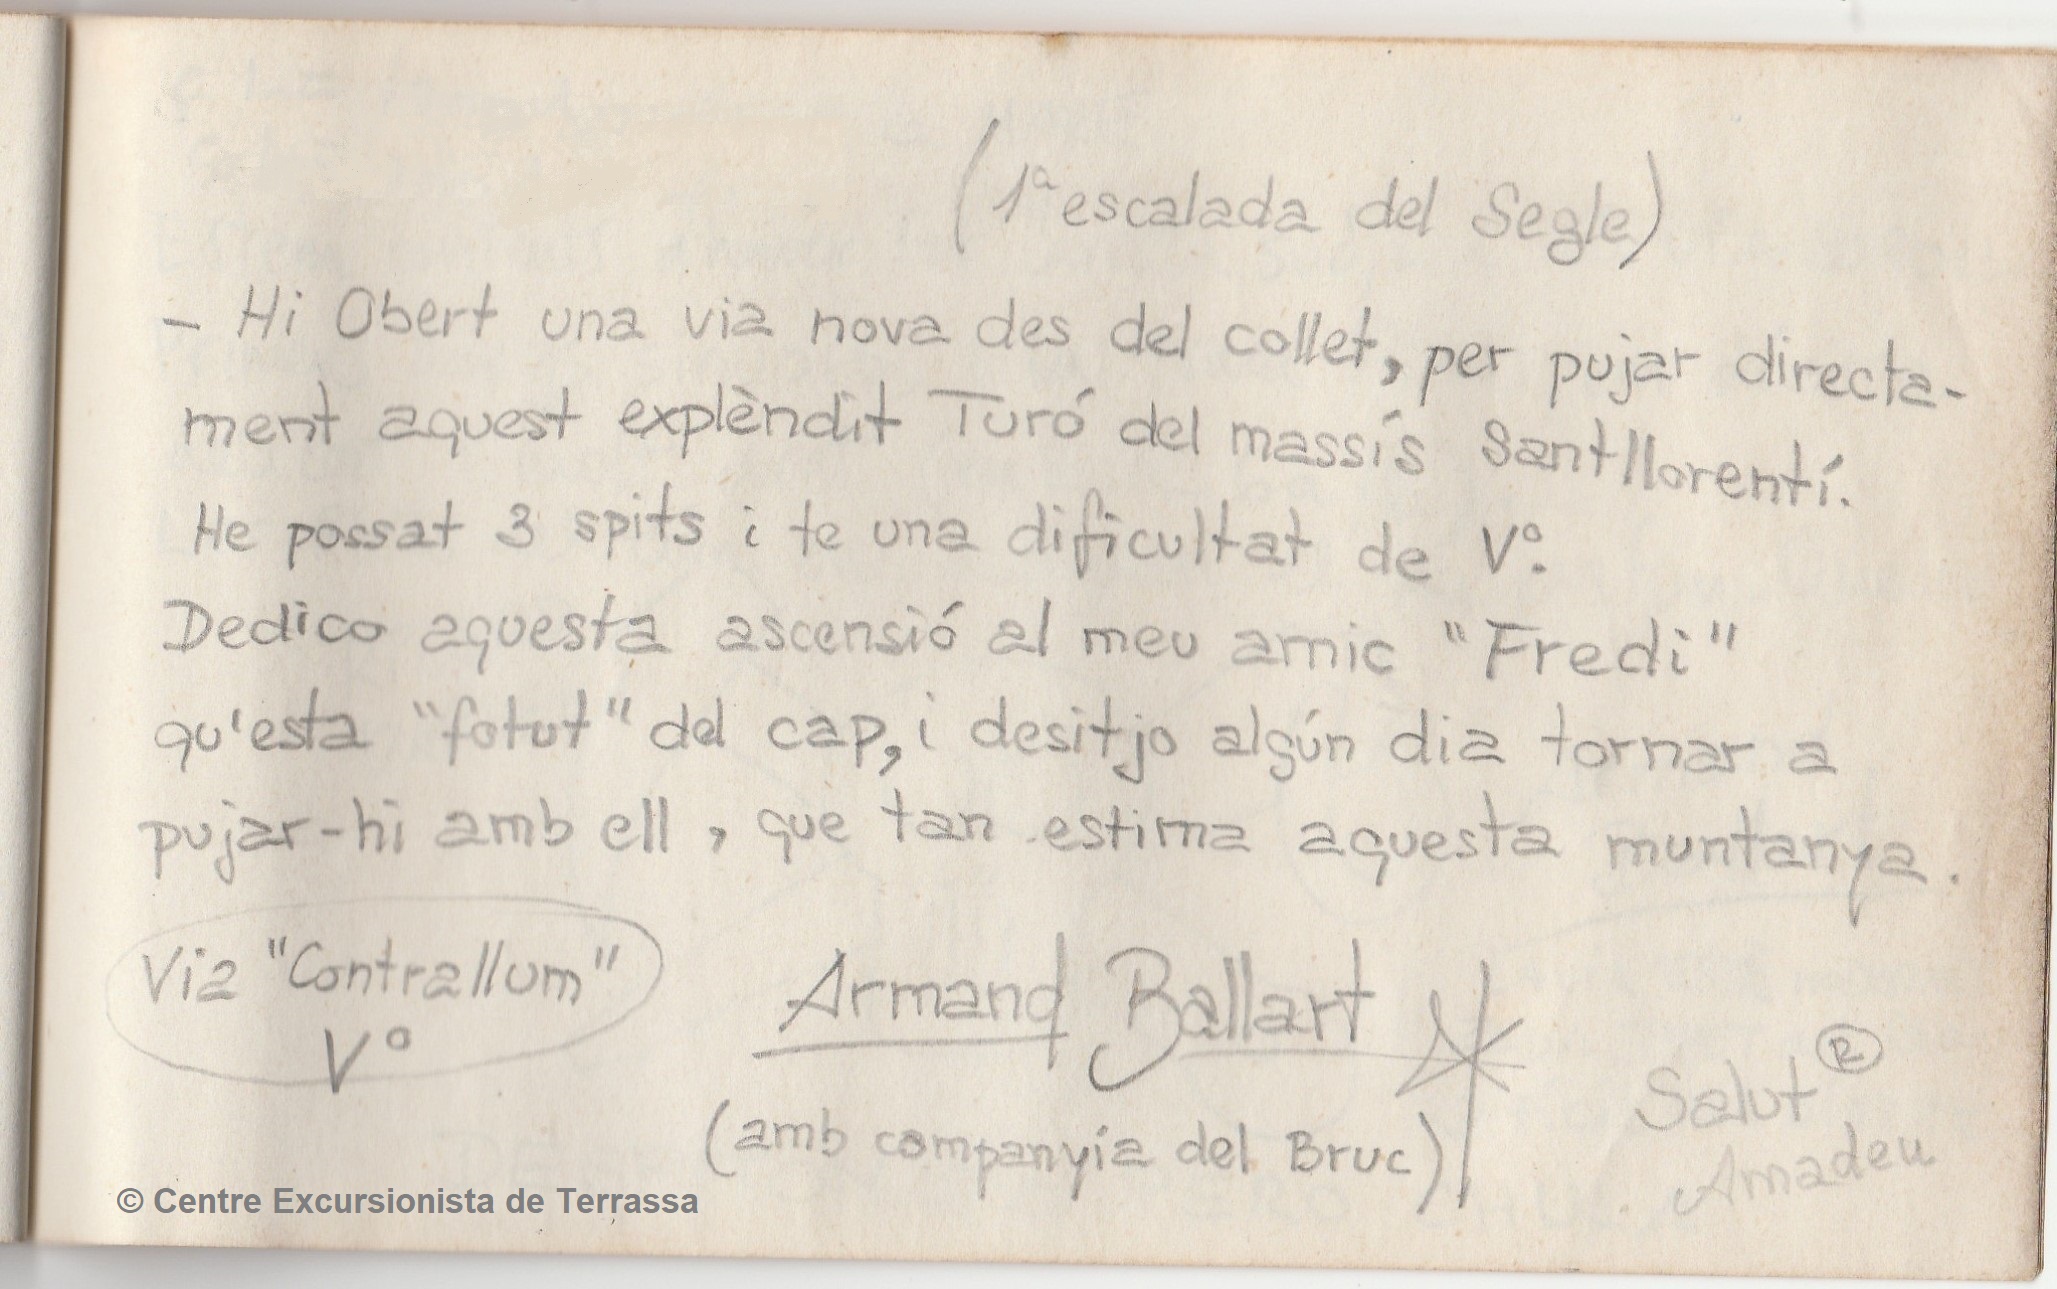 (1ª escalada del Segle)
- Hi Obert una via nova des del collet, per pujar directa-
ment aquest explèndit Turó del massís Santllorentí.
He possat 3 spits i te una dificultat de Vº.
Dedico aquesta ascensió al meu amic "Fredi"
qu'esta "fotut" del cap, i desitjo algún dia tornar a
pujar-hi amb ell, que tan estima aquesta muntanya.
Via "Contrallum"
Vº
Armand Ballart
(amb companyia del Bruc)
Salut ®
Amadeu
© Centre Excursionista de Terrassa